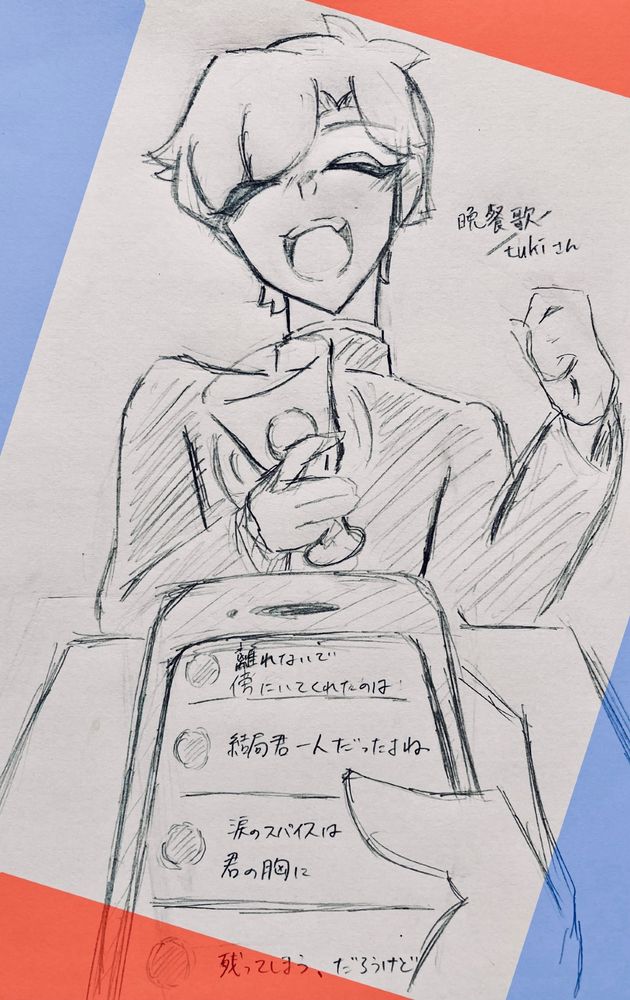 晩餐歌/
/tukiさん
離れないで
傍にいてくれたのは
結局君一人だったよね
涙のスパイスは
君の胸に
残ってしまう、だろうけど